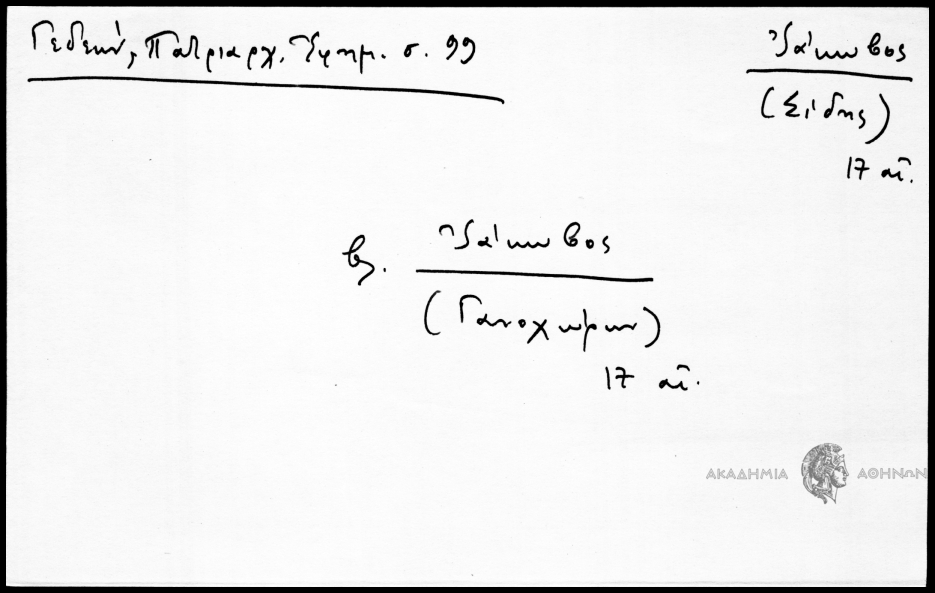 Γεδεών, Πατριαρχ. Ἐφημ. σ. 99
Ἰάκωβος
(Σίδης)
17 αἰ.
βλ. Ἰάκωβος
(Γανοχώρων)
17 αἰ.
ΑΚΑΔΗΜΙΑ ΑΘΗΝΩΝ